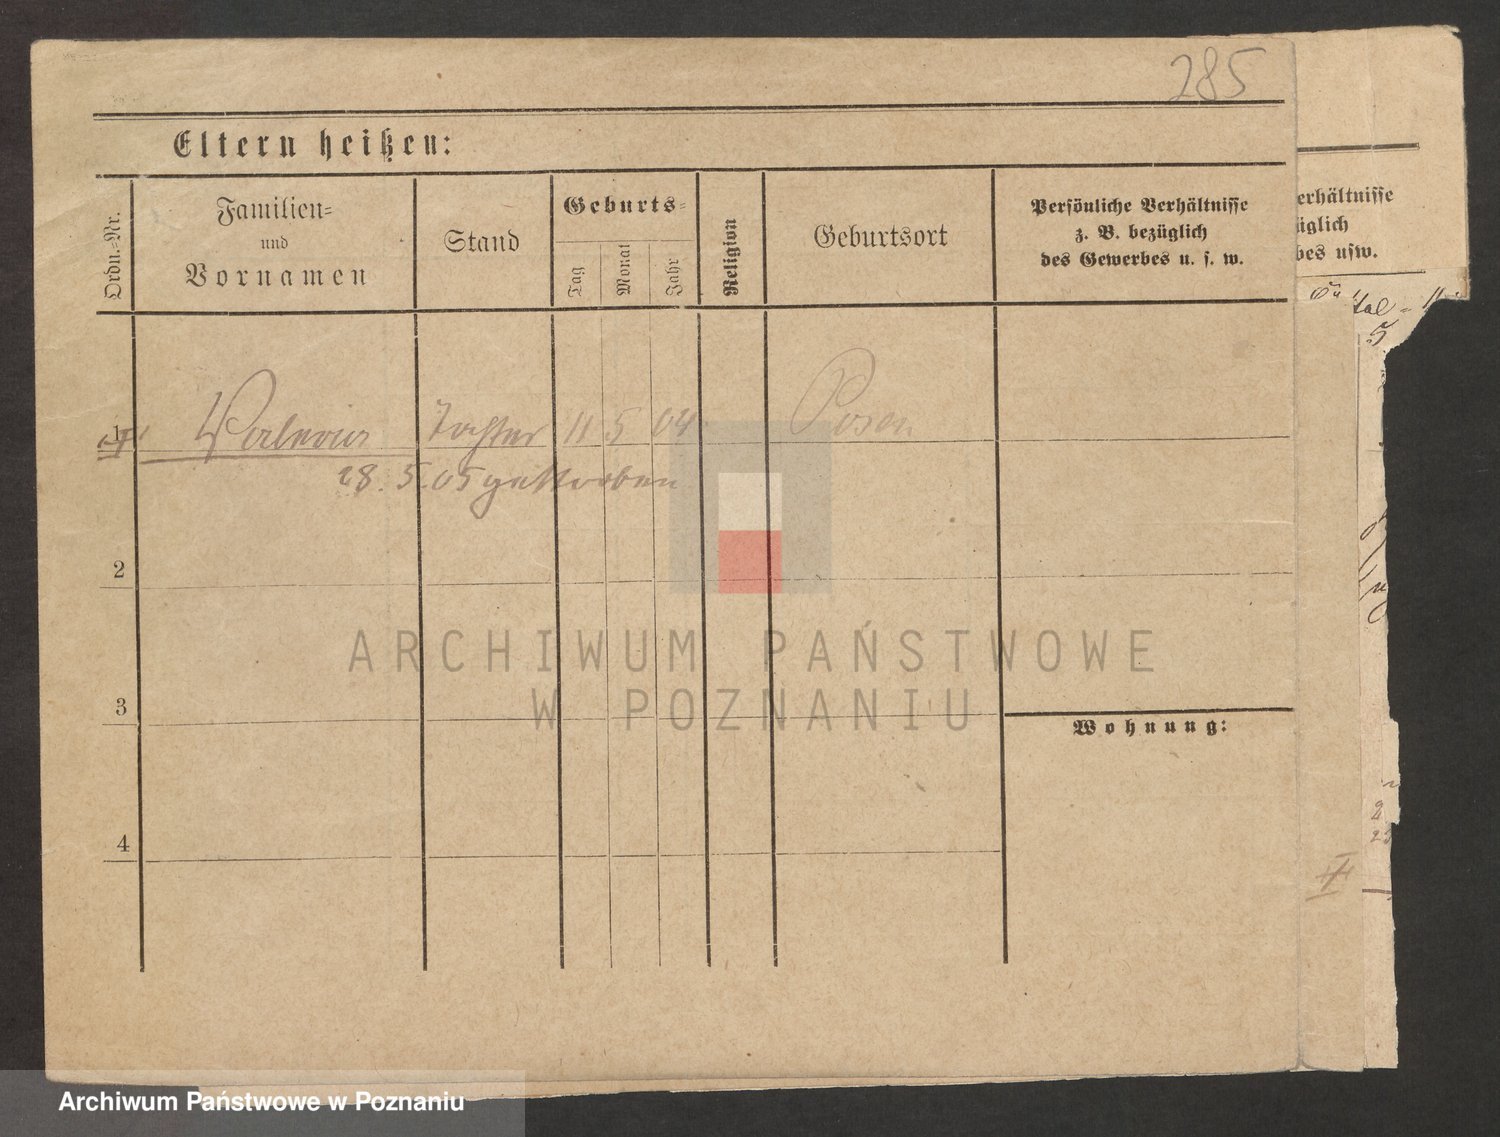 285
Eltern heißen:
Ordn.-Nr.
Familien-
und
Vornamen
Stand
Geburts-
Tag
Monat
Jahr
Religion
Geburtsort
Persönliche Verhältnisse
z. B. bezüglich
des Gewerbes u. s. w.
erhältnisse
üglich
bes usw.
1 Tochter 11 5 04 Posen
28. 5. 05 gestorben
2
3
4
Wohnung:
ARCHIWUM PAŃSTWOWE
W POZNANIU
Archiwum Państwowe w Poznaniu